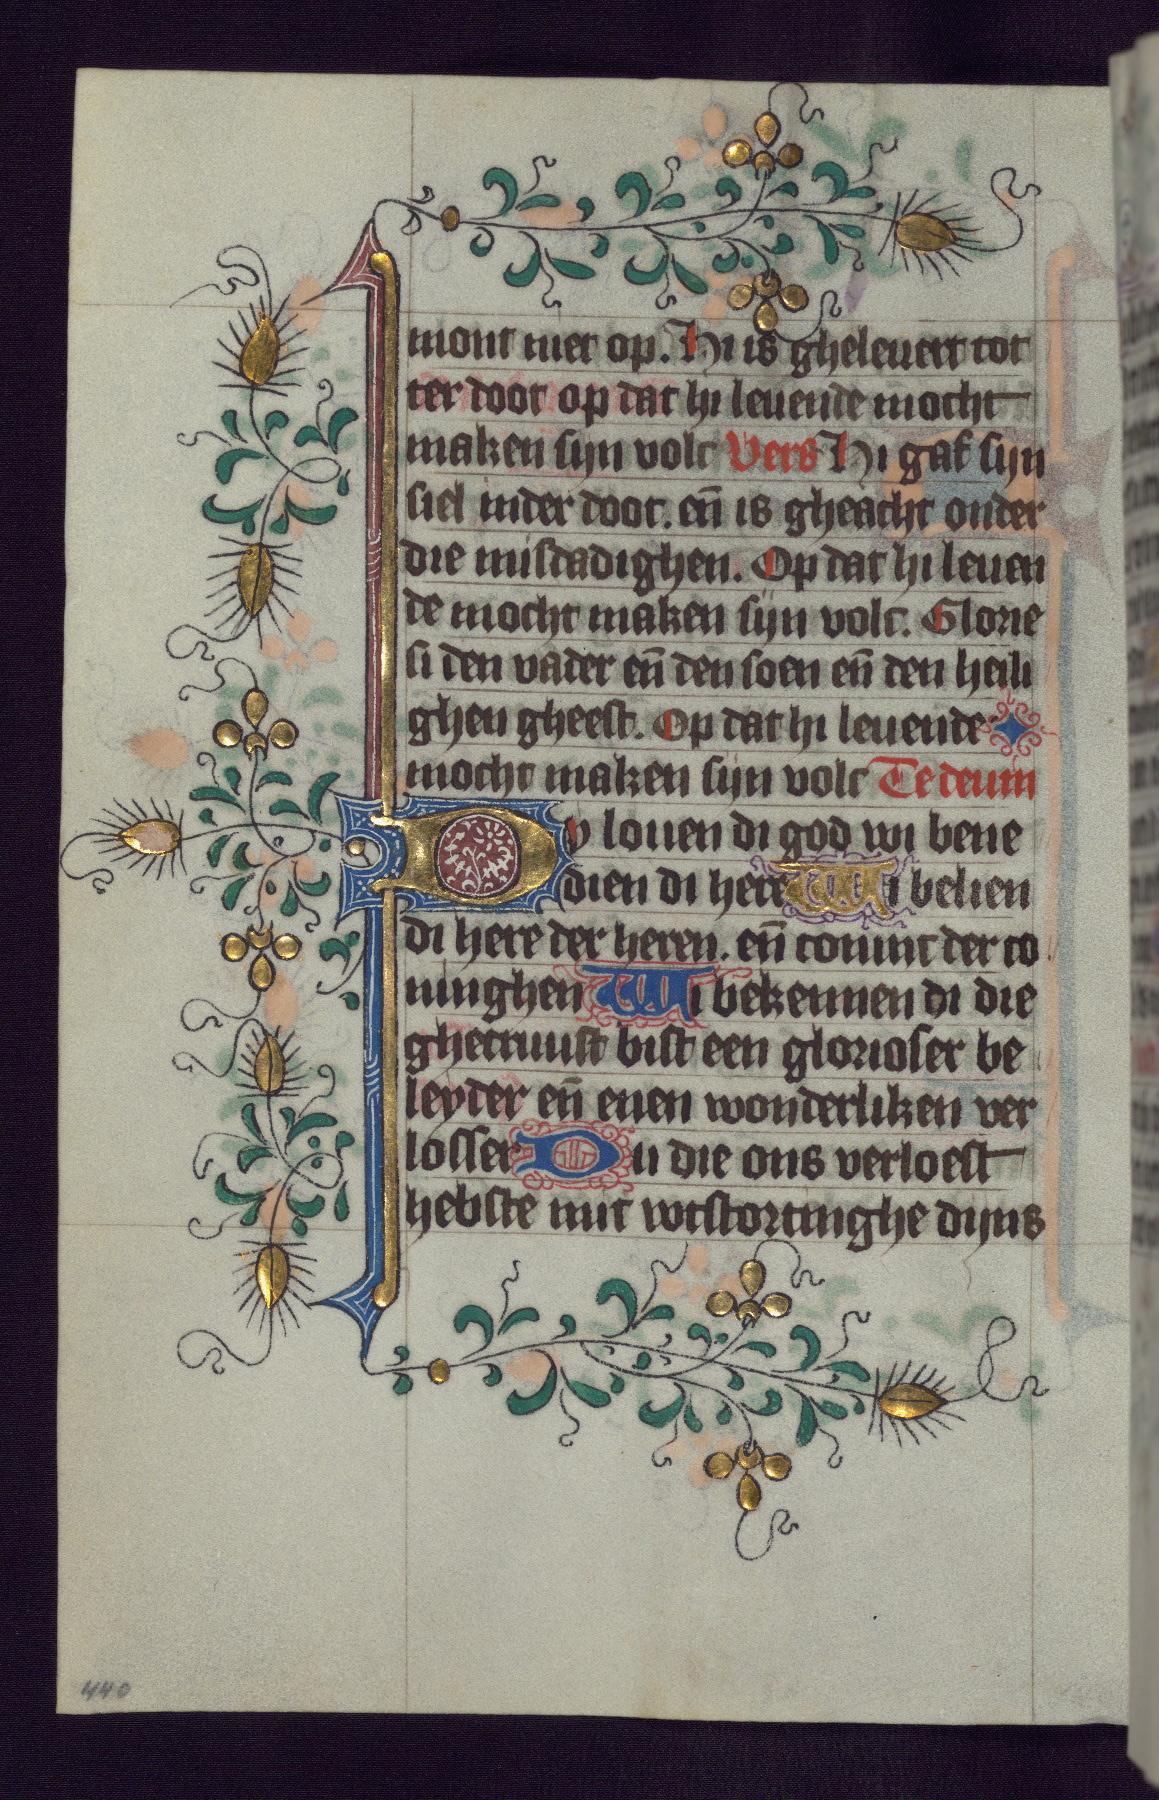 mont niet op. Hi is ghelevert tot
ter doot op dat hi levende mocht
maken sijn volc Vers Hi gaf sijn
siel inder doot. eñ is gheacht onder
die misdadighen. Op dat hi leven
de mocht maken sijn volc. Glorie
si den vader eñ den soen eñ den heili
ghen gheest. Op dat hi levende
mocht maken sijn volc Te deum
Dy loven di god wi bene
dien di here Wi belien
di here der heren. eñ coninc der co
ninghen Wi bekennen di die
ghecruust bist een glorioser be
leyder eñ enen wonderliken ver
losser Du die ons verloest
hebste mit wtstortinghe dijns
440